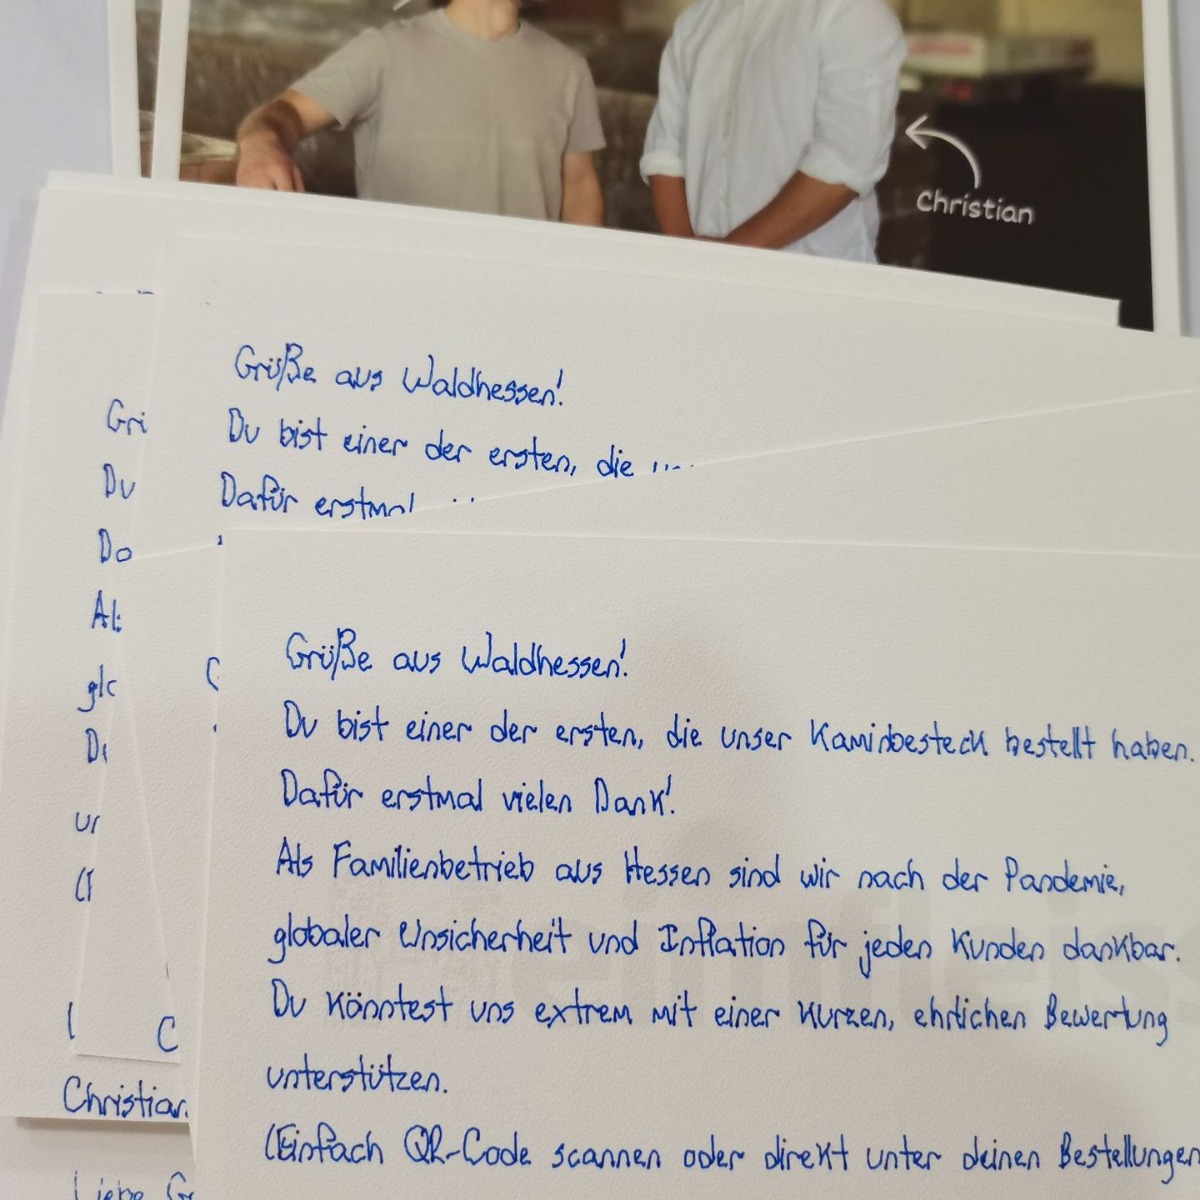 Christian
Grüße aus Waldhessen!
Du bist einer der ersten, die
Dafür erstmal
Gri
Du
Do
glc
ur
Christian
Grüße aus Waldhessen!
Du bist einer der ersten, die unser Kaminbesteck bestellt haben.
Dafür erstmal vielen Dank!
Als Familienbetrieb aus Hessen sind wir nach der Pandemie,
globaler Unsicherheit und Inflation für jeden Kunden dankbar.
Du könntest uns extrem mit einer kurzen, ehrlichen Bewertung
unterstützen.
(Einfach QR-Code scannen oder direkt unter deinen Bestellungen
Liebe Gr